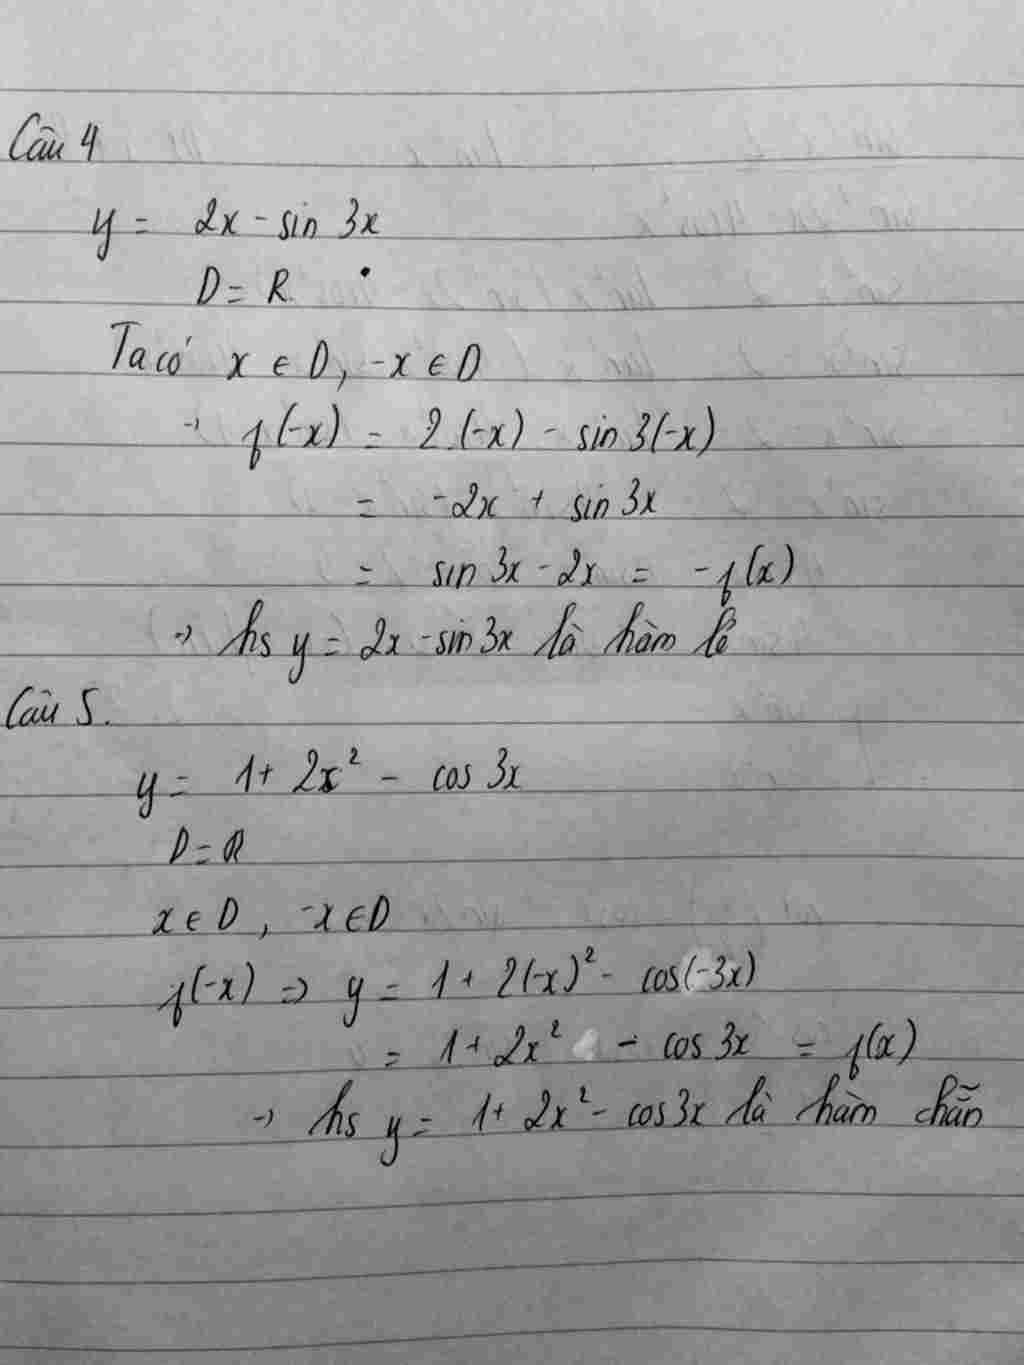 Câu 4
y = 2x - sin 3x
D = R.
Ta có x ∈ D, -x ∈ D
→ f(-x) = 2.(-x) - sin 3(-x)
= -2x + sin 3x
= sin 3x - 2x = -f(x)
→ hs y = 2x - sin 3x là hàm lẻ
Câu 5.
y = 1 + 2x² - cos 3x
D = R
x ∈ D, -x ∈ D
f(-x) ⇒ y = 1 + 2(-x)² - cos(-3x)
= 1 + 2x² - cos 3x = f(x)
→ hs y = 1 + 2x² - cos 3x là hàm chẵn